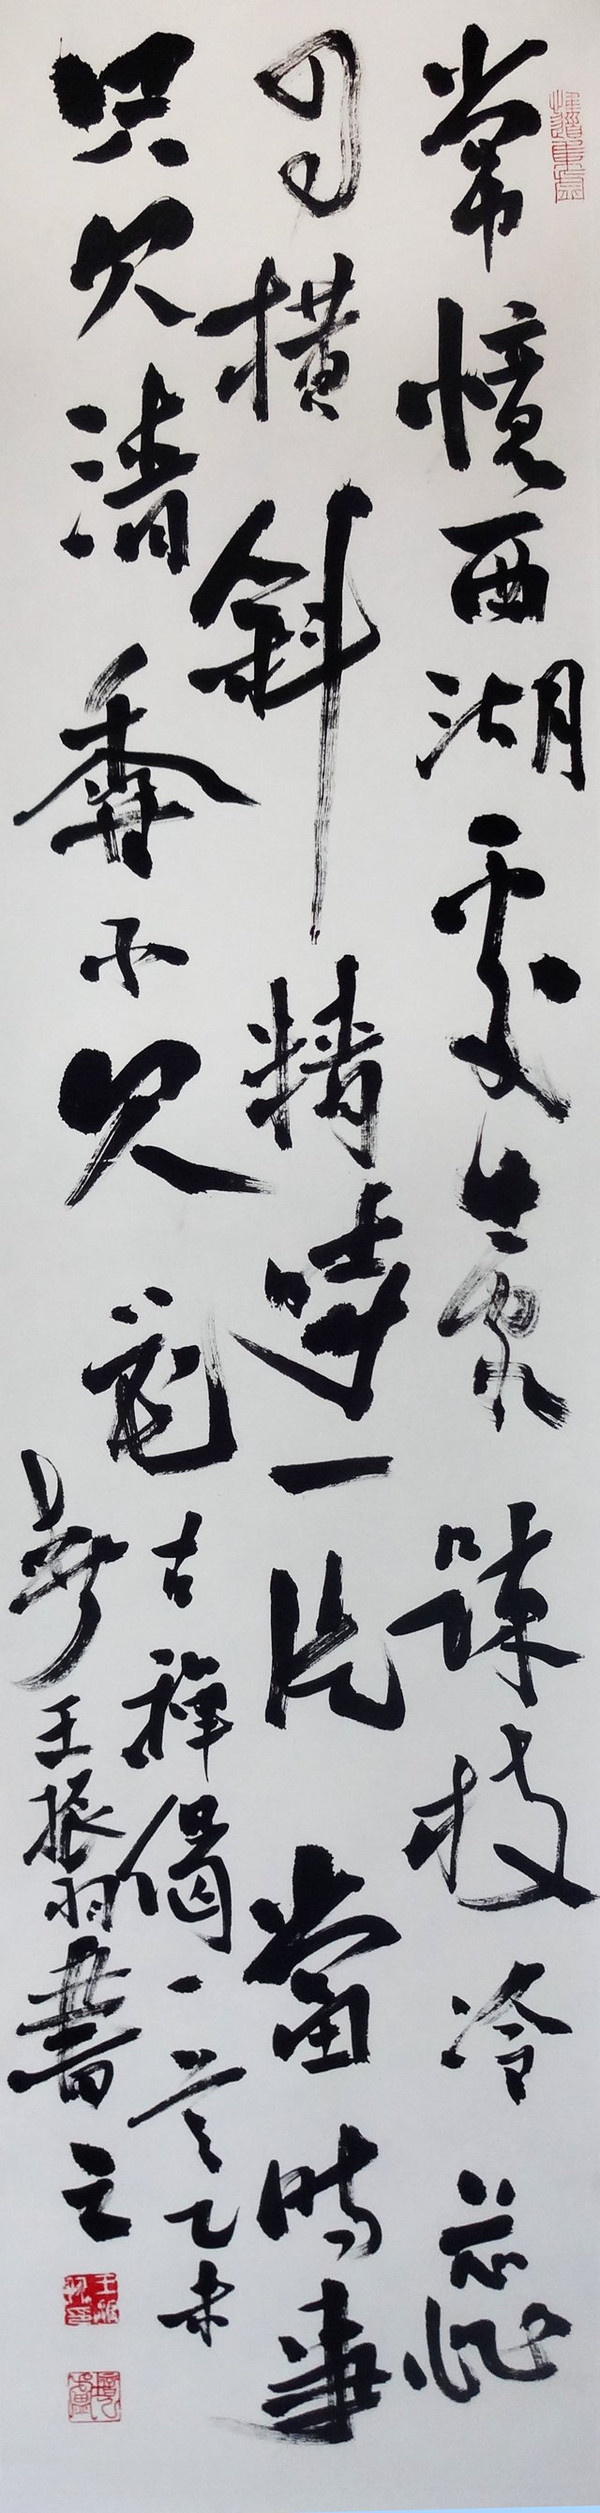 常憶西湖處士家疎枝冷蕊
自橫斜精一片當時事
只欠清香不欠花
古禪偈一首乙未
王振羽書之